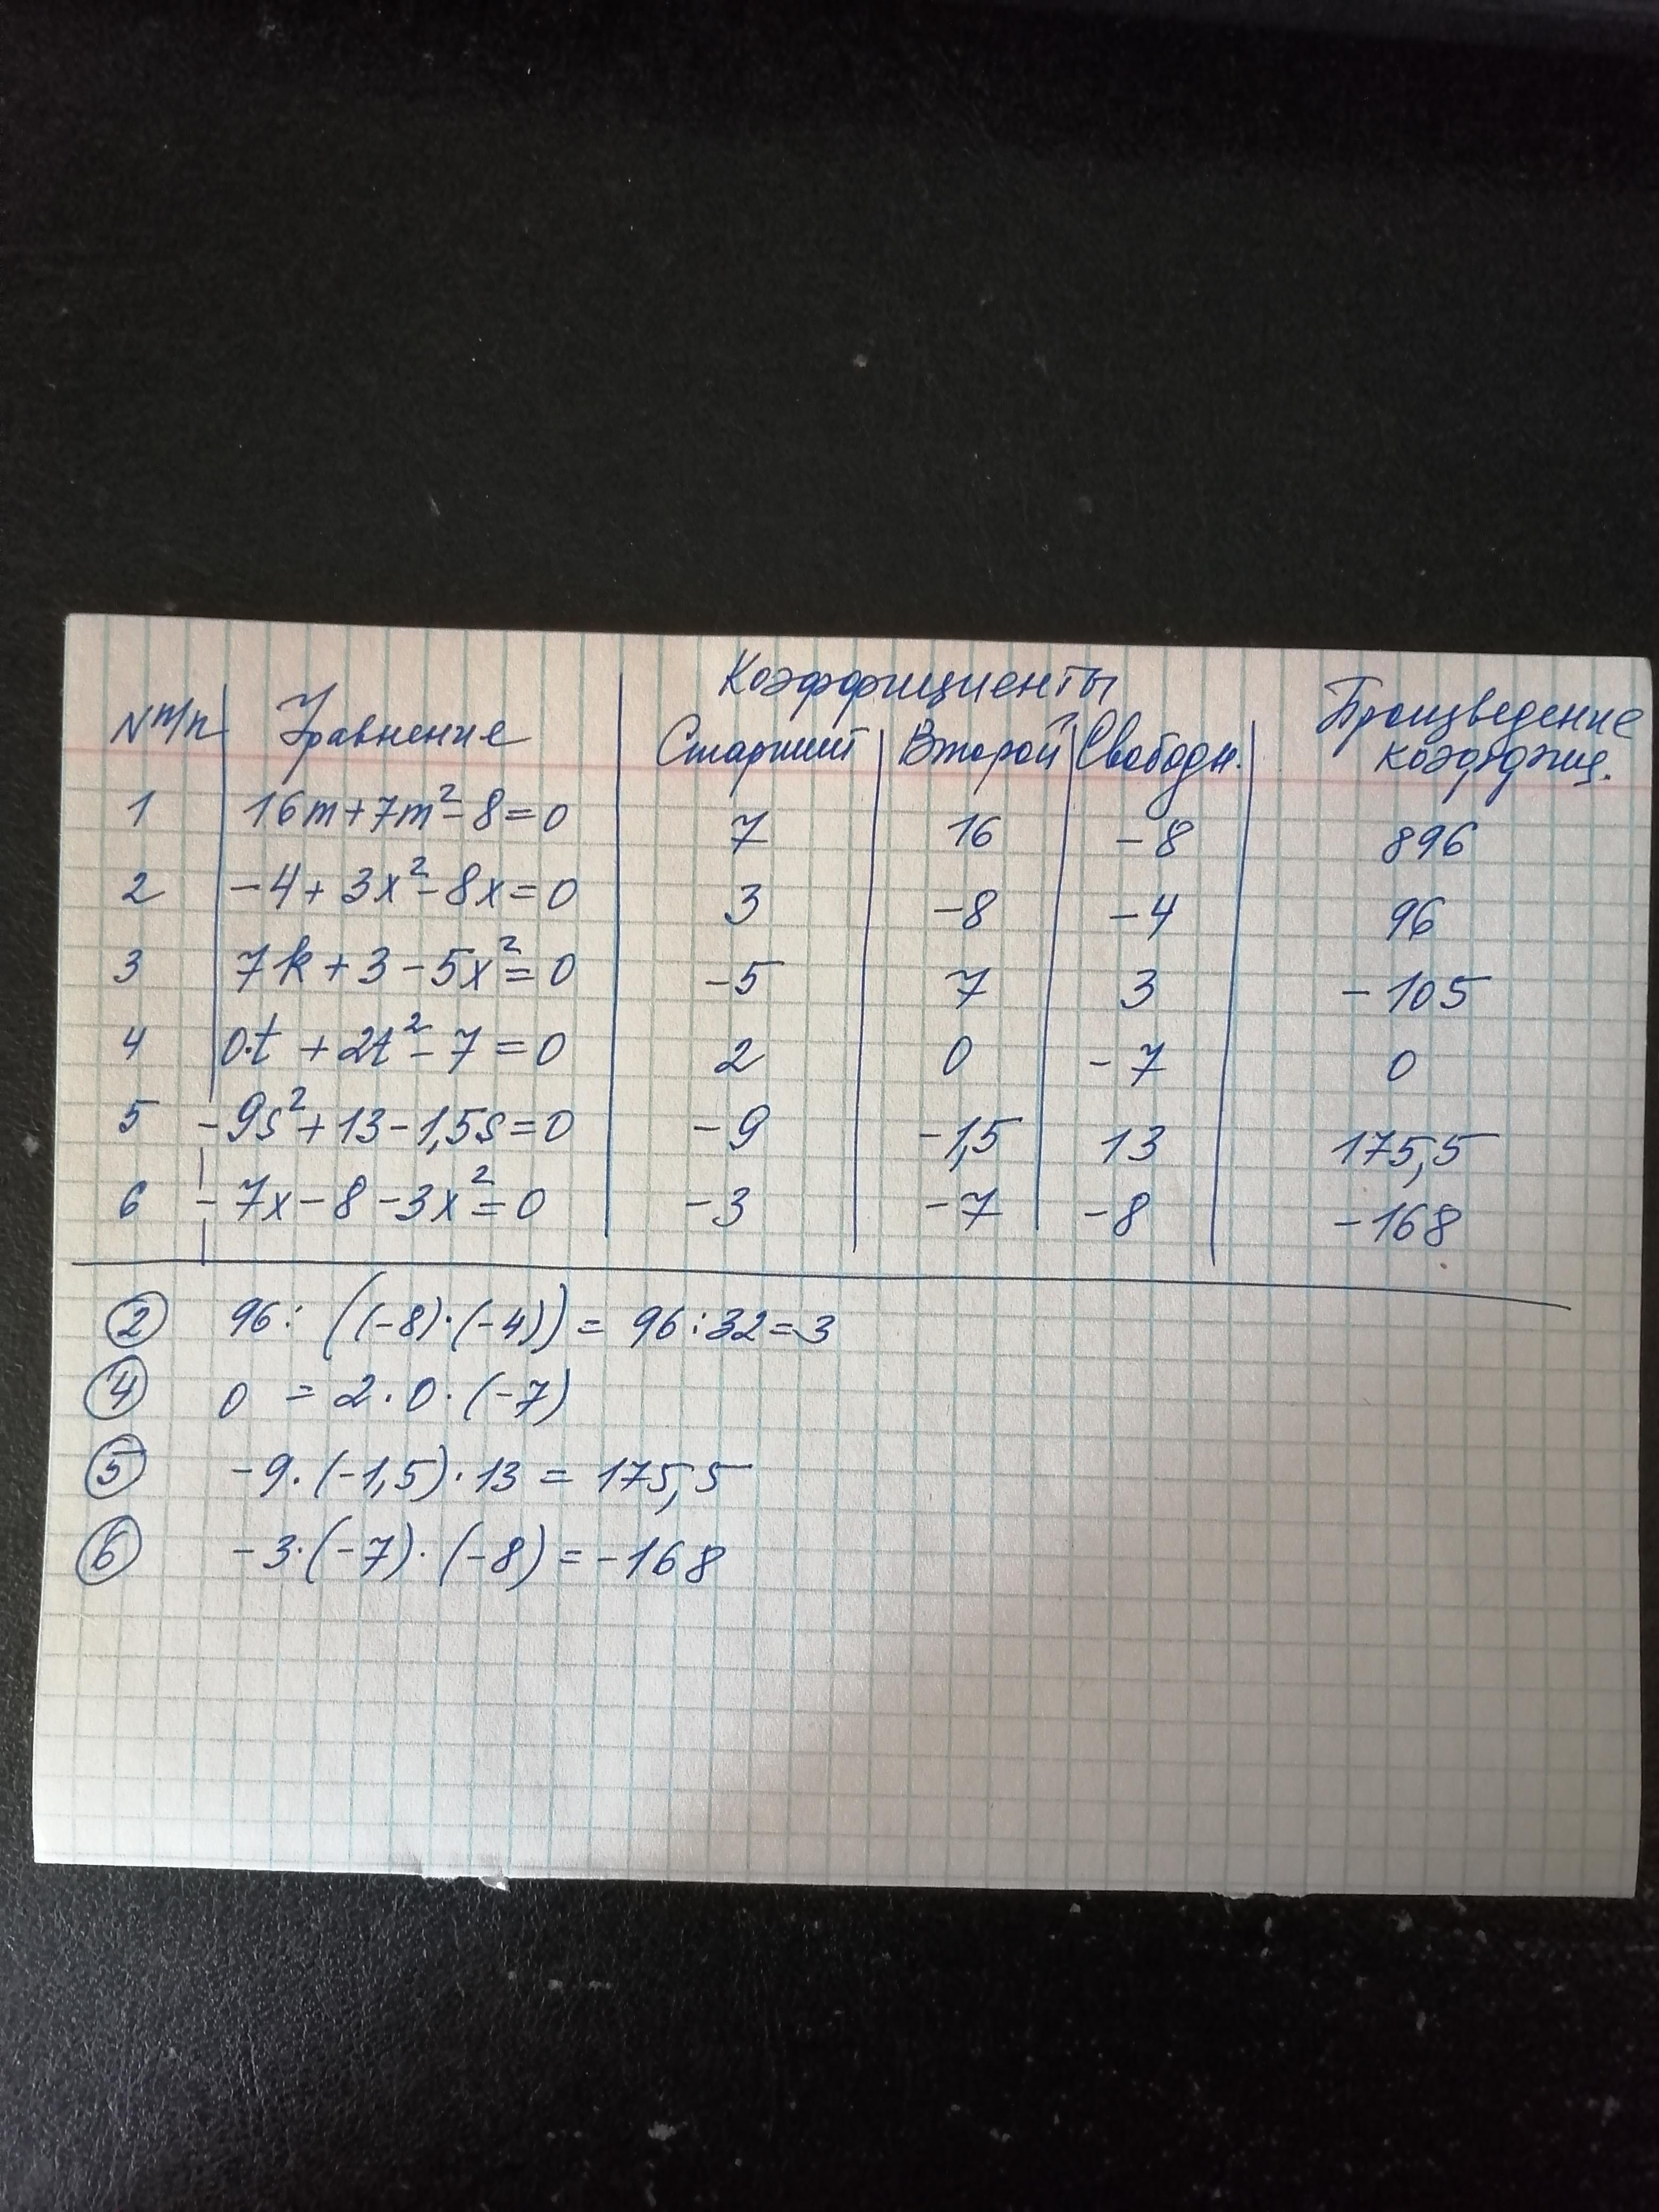 Коэффициенты
№ п/п Уравнение Старший Второй Свободн. Произведение коэффиц.
1 16m+7m²-8=0 7 16 -8 896
2 -4+3x²-8x=0 3 -8 -4 96
3 7k+3-5x²=0 -5 7 3 -105
4 0·t+2t²-7=0 2 0 -7 0
5 -9s²+13-1,5s=0 -9 -1,5 13 175,5
6 -7x-8-3x²=0 -3 -7 -8 -168
② 96:((-8)·(-4))=96:32=3
④ 0 = 2·0·(-7)
⑤ -9·(-1,5)·13=175,5
⑥ -3·(-7)·(-8)=-168